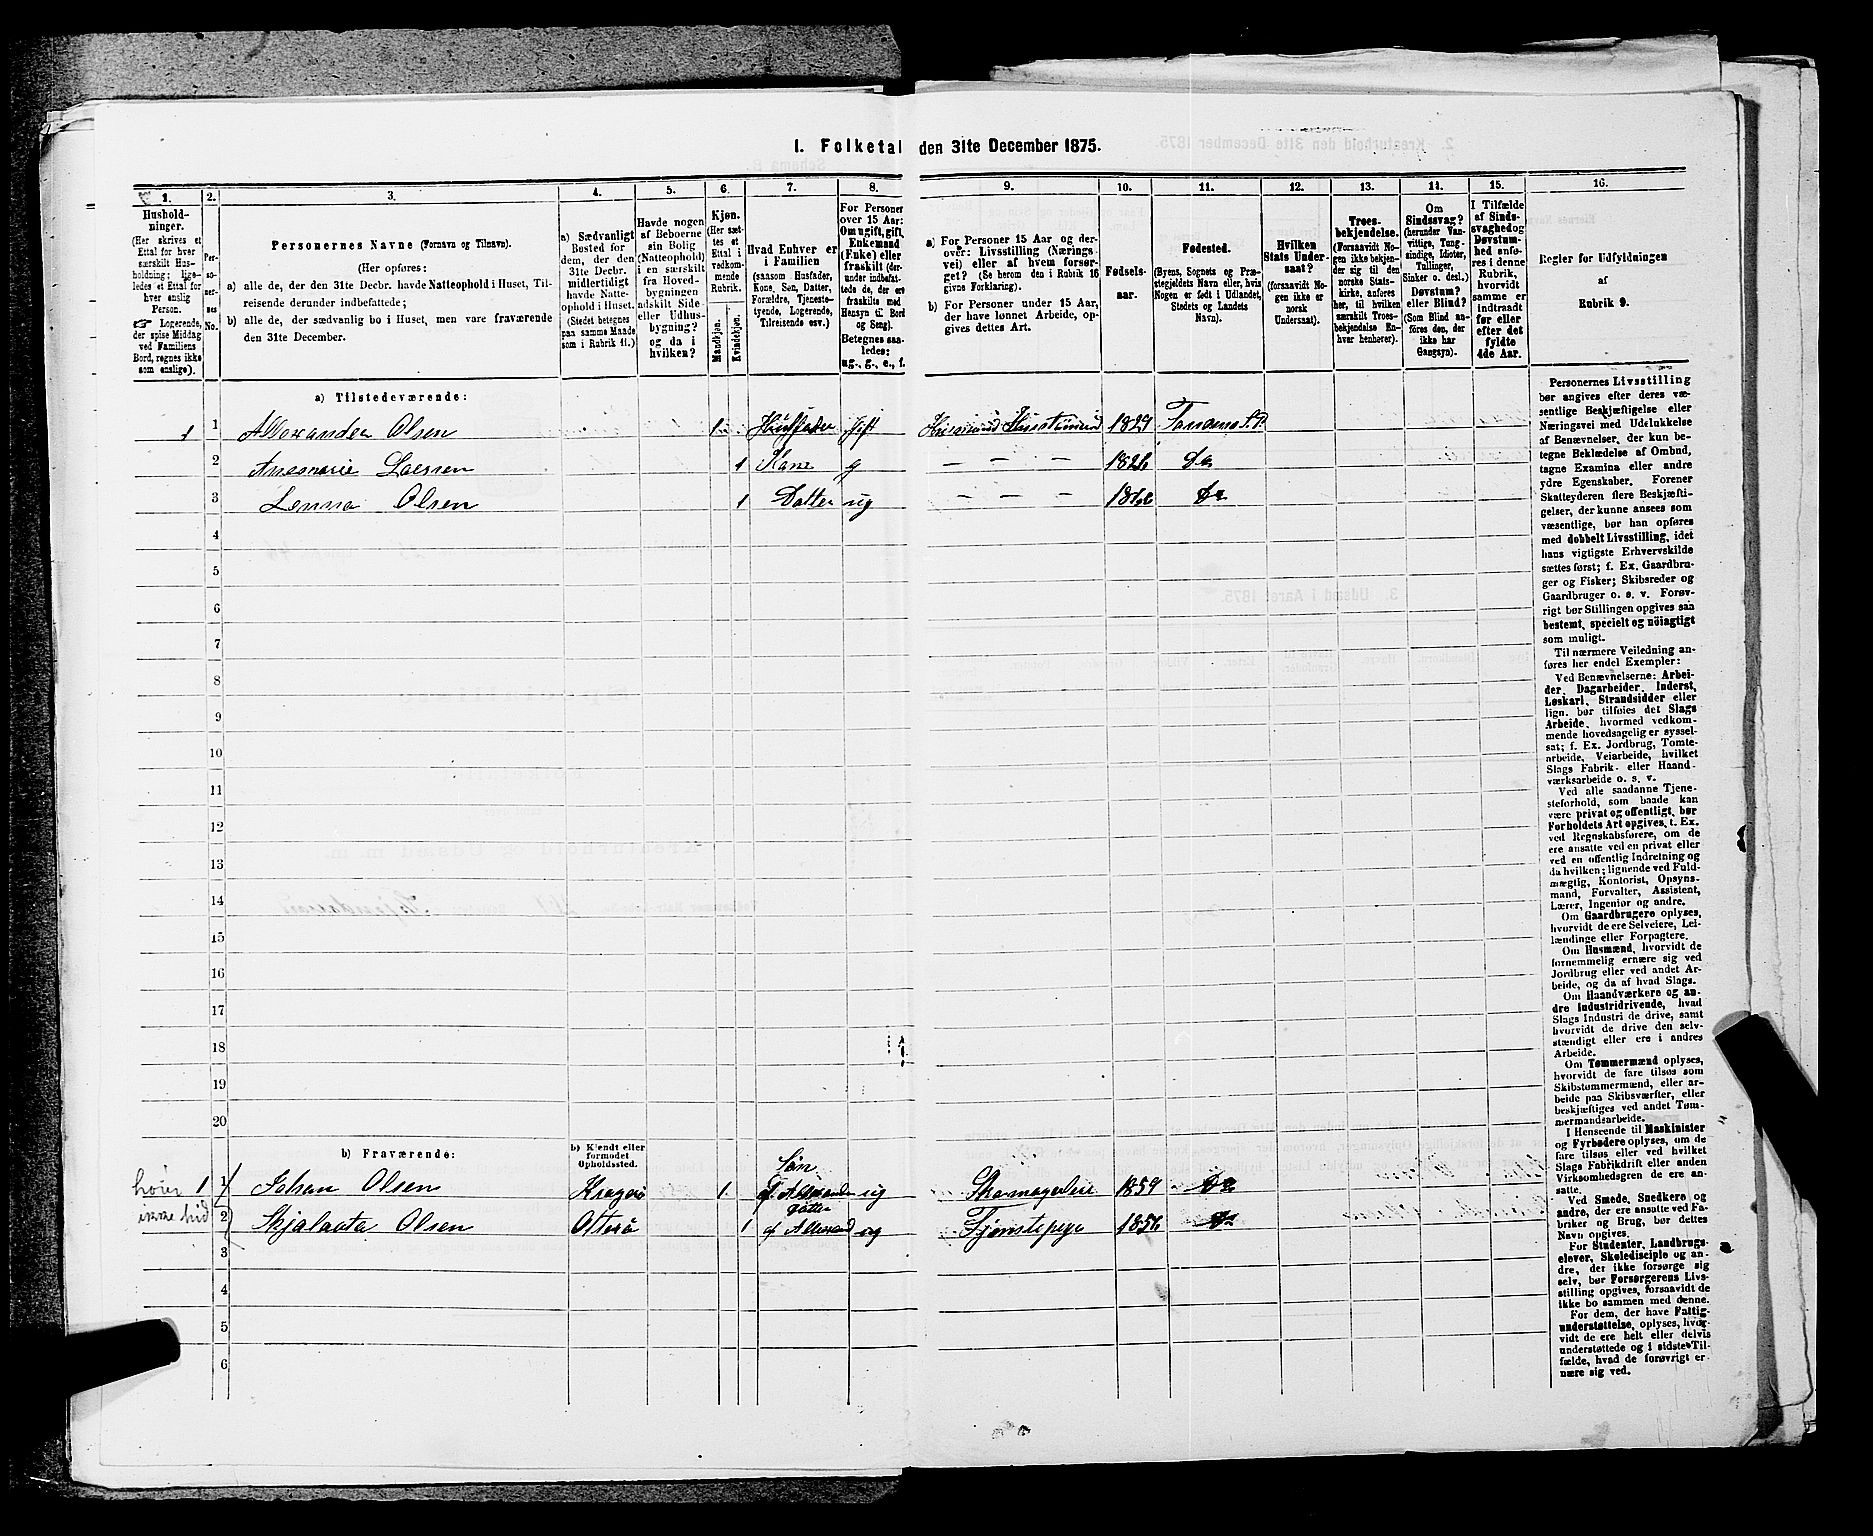 1. Folketal den 31te December 1875.
1.
Hushold-
ninger.
(Her skrives et
Ettal for hver
særskilt Hus-
holdning; lige-
ledes et Ettal for
hver enslig
Person.
☞ Logerende,
der spise Middag
ved Familiens
Bord, regnes ikke
som enslige).
2.
Per-
so-
ner-
nes
No.
3.
Personernes Navne (Fornavn og Tilnavn).
(Her opføres:
a) alle de, der den 31te Decbr. havde Natteophold i Huset, Til-
reisende derunder indbefattede;
b) alle de, der sædvanlig bo i Huset, men vare fraværende
den 31te December.
4.
a) Sædvanligt
Bosted for
dem, der den
31te Decbr.
midlertidigt
havde Natte-
ophold i Huset.
(Stedet betegnes
paa samme Maade
som i Rubrik 11.)
5.
Havde nogen
af Beboerne
sin Bolig
(Natteophold)
i en særskilt
fra Hoved-
bygningen
adskilt Side-
eller Udhus-
bygning?
og da i
hvilken?
6.
Kjøn.
(Her sæt-
tes et
Ettal i
vedkom-
mende
Rubrik.
Mandkjøn.
Kvindekjøn.
7.
Hvad Enhver er
i Familien
(saasom Husfader,
Kone, Søn, Datter,
Forældre, Tjeneste-
tyende, Logerende,
Tilreisende osv.)
8.
For Personer
over 15 Aar:
Om ugift, gift,
Enkemand
(Enke) eller
fraskilt (der-
under indbefat-
tede de, der ere
fraskilte med
Hensyn til Bord
og Seng).
Betegnes saa-
ledes:
ug., g., e., f.
9.
a) For Personer 15 Aar og der-
over: Livsstilling (Nærings-
vei) eller af hvem forsør-
get? (Se herom den i Rubrik 16
givne Forklaring).
b) For Personer under 15 Aar,
der have lønnet Arbeide, op-
gives dettes Art.
10.
Fødsels-
aar.
11.
Fødested.
(Byens, Sognets og Præ-
stegjeldets Navn eller, hvis
Nogen er født i Udlandet,
Stedets og Landets
Navn).
12.
Hvilken
Stats Under-
saat?
(forsaavidt No-
gen ikke er
norsk
Undersaat).
13.
Troes-
bekjendelse.
(Forsaavidt No-
gen ikke bekjen-
der sig til den
norske Stats-
kirke, anføres
her, til hvilken
særskilt Troes-
bekjendelse En-
hver henhører).
14.
Om
Sindssvag?
(herunder Van-
vittige, Tung-
sindige, Idioter,
Tullinger,
Sinker o. desl.)
Døvstum?
eller Blind?
(Som Blind an-
føres den, der
ikke har
Gangsyn).
15.
I Tilfælde
af Sinds-
svaghed og
Døvstum-
hed anfø-
res i denne
Rubrik,
hvorvidt
samme er
indtraadt
før eller
efter det
fyldte
4de Aar.
16.
Regler for Udfyldningen
af
Rubrik 9.
a) Tilstedeværende:
1 1 Alexander Olsen 1 Husfader gift Husmand 1829
2 Anemarie Larsen 1 Kone g — — — 1826 Do
3 Olsen 1 Datter ug — — — Do
4
5
6
7
8
9
10
11
12
13
14
15
16
17
18
19
20
b) Fraværende:
b) Kjendt eller
formodet
Opholdssted.
Søn
hører 1 1 Johan Olsen Kragerø 1 af Alexander ug 1859 Do
ikke hid 2 Olsen 1 Datter af ug Tjenstepige 1856 Do
3
4
5
6
Personernes Livsstilling
bør angives efter deres væ-
sentlige Beskjæftigelse eller
Næringsvei med Udelukkelse
af Benævnelser, der kun be-
tegne Beklædelse af Ombud,
tagne Examina eller andre
ydre Egenskaber. Forener
Skatteyderen flere Beskjæfti-
gelser, der kunne ansees som
væsentlige, bør han opføres
med dobbelt Livsstilling, idet
hans vigtigste Erhvervskilde
sættes først; f. Ex. Gaardbru-
ger og Fisker; Skibsreder og
Gaardbruger o. s. v. Forøv-
rigt bør Stillingen opgives saa
bestemt, specielt og nöiagtigt
som muligt.
Til nærmere Veiledning an-
føres her endel Exempler:
Ved Benævnelserne: Arbei-
der, Dagarbeider, Inderst,
Løskarl, Strandsidder eller
lign. bør tilføies det Slags
Arbeide, hvormed vedkom-
mende hovedsagelig er syssel-
sat; f. Ex. Jordbrug, Tomte-
arbeide, Veiarbeide, hvilket
Slags Fabrik- eller Haand-
værksarbeide o. s. v.
Ved alle saadanne Tjene-
steforhold, som baade kan
være privat og offentligt, bør
Forholdets Art opgives, t. Ex.
ved Regnskabsførere, om de
ere ansatte ved en privat eller
ved en offentlig Indretning og
da hvilken; lignende ved Fuld-
mægtig, Kontorist, Opsyns-
mand, Forvalter, Assistent,
Lærer, Ingeniør og andre.
Om Gaardbrugere oplyses,
hvorvidt de ere Selveiere, Lei-
lændinge eller Forpagtere.
Om Husmænd, hvorvidt de
fornemmelig ernære sig ved
Jordbrug eller ved andet Ar-
beide, og da af hvad Slags.
Om Haandværkere og an-
dre Industridrivende, hvad
Slags Industri de drive, samt
hvorvidt de drive den selv-
stændigt eller ere i andres
Arbeide.
Om Tømmermænd oplyses,
hvorvidt de fare tilsøs som
Skibstømmermænd, eller ar-
beide paa Skibsværfter, eller
beskjæftiges ved andet Tøm-
mermandsarbeide.
I Henseende til Maskinister
og Fyrbødere oplyses, om de
fare tilsøs eller ved hvilket
Slags Fabrikdrift eller anden
Virksomhedsgren de ere an-
satte.
Ved Smede, Snedkere og
andre, der ere ansatte ved Fa-
briker og Brug, bør dettes
Navn opgives.
For Studenter, Landbrugs-
elever, Skoledisciple og an-
dre, der ikke forsørge sig
selv, bør Forsørgerens Livs-
stilling opgives, forsaavidt de
ikke bo sammen med denne.
For dem, der have Fattig-
understøttelse, oplyses, hvor-
vidt de ere helt eller delvis
understøttede og i sidste Til-
fælde, hvad de forøvrigt er-
nære sig ved.